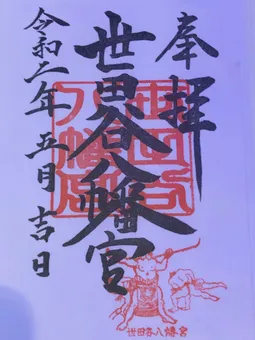 奉拝
世田谷八幡宮
令和二年五月吉日
世田谷八幡宮